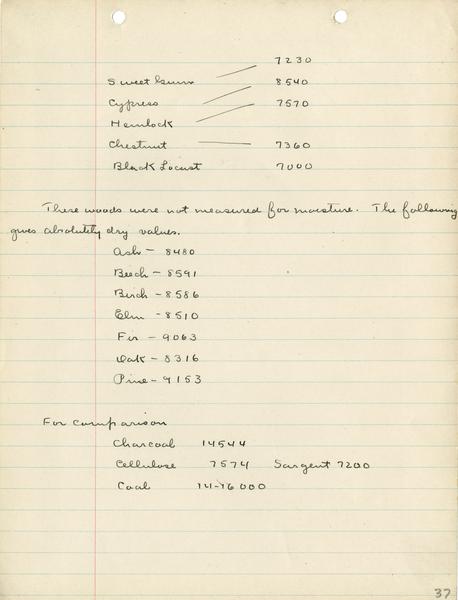 7230
Sweet Gum 8540
Cypress 7570
Hemlock
Chestnut — 7360
Black Locust 7000
These woods were not measured for moisture. The following
gives absolutely dry values.
Ash - 8480
Beech - 8591
Birch - 8586
Elm - 8510
Fir - 9063
Oak - 8316
Pine - 9153
For comparison
Charcoal 14544
Cellulose 7574 Sargent 7200
Coal 14-16000
37